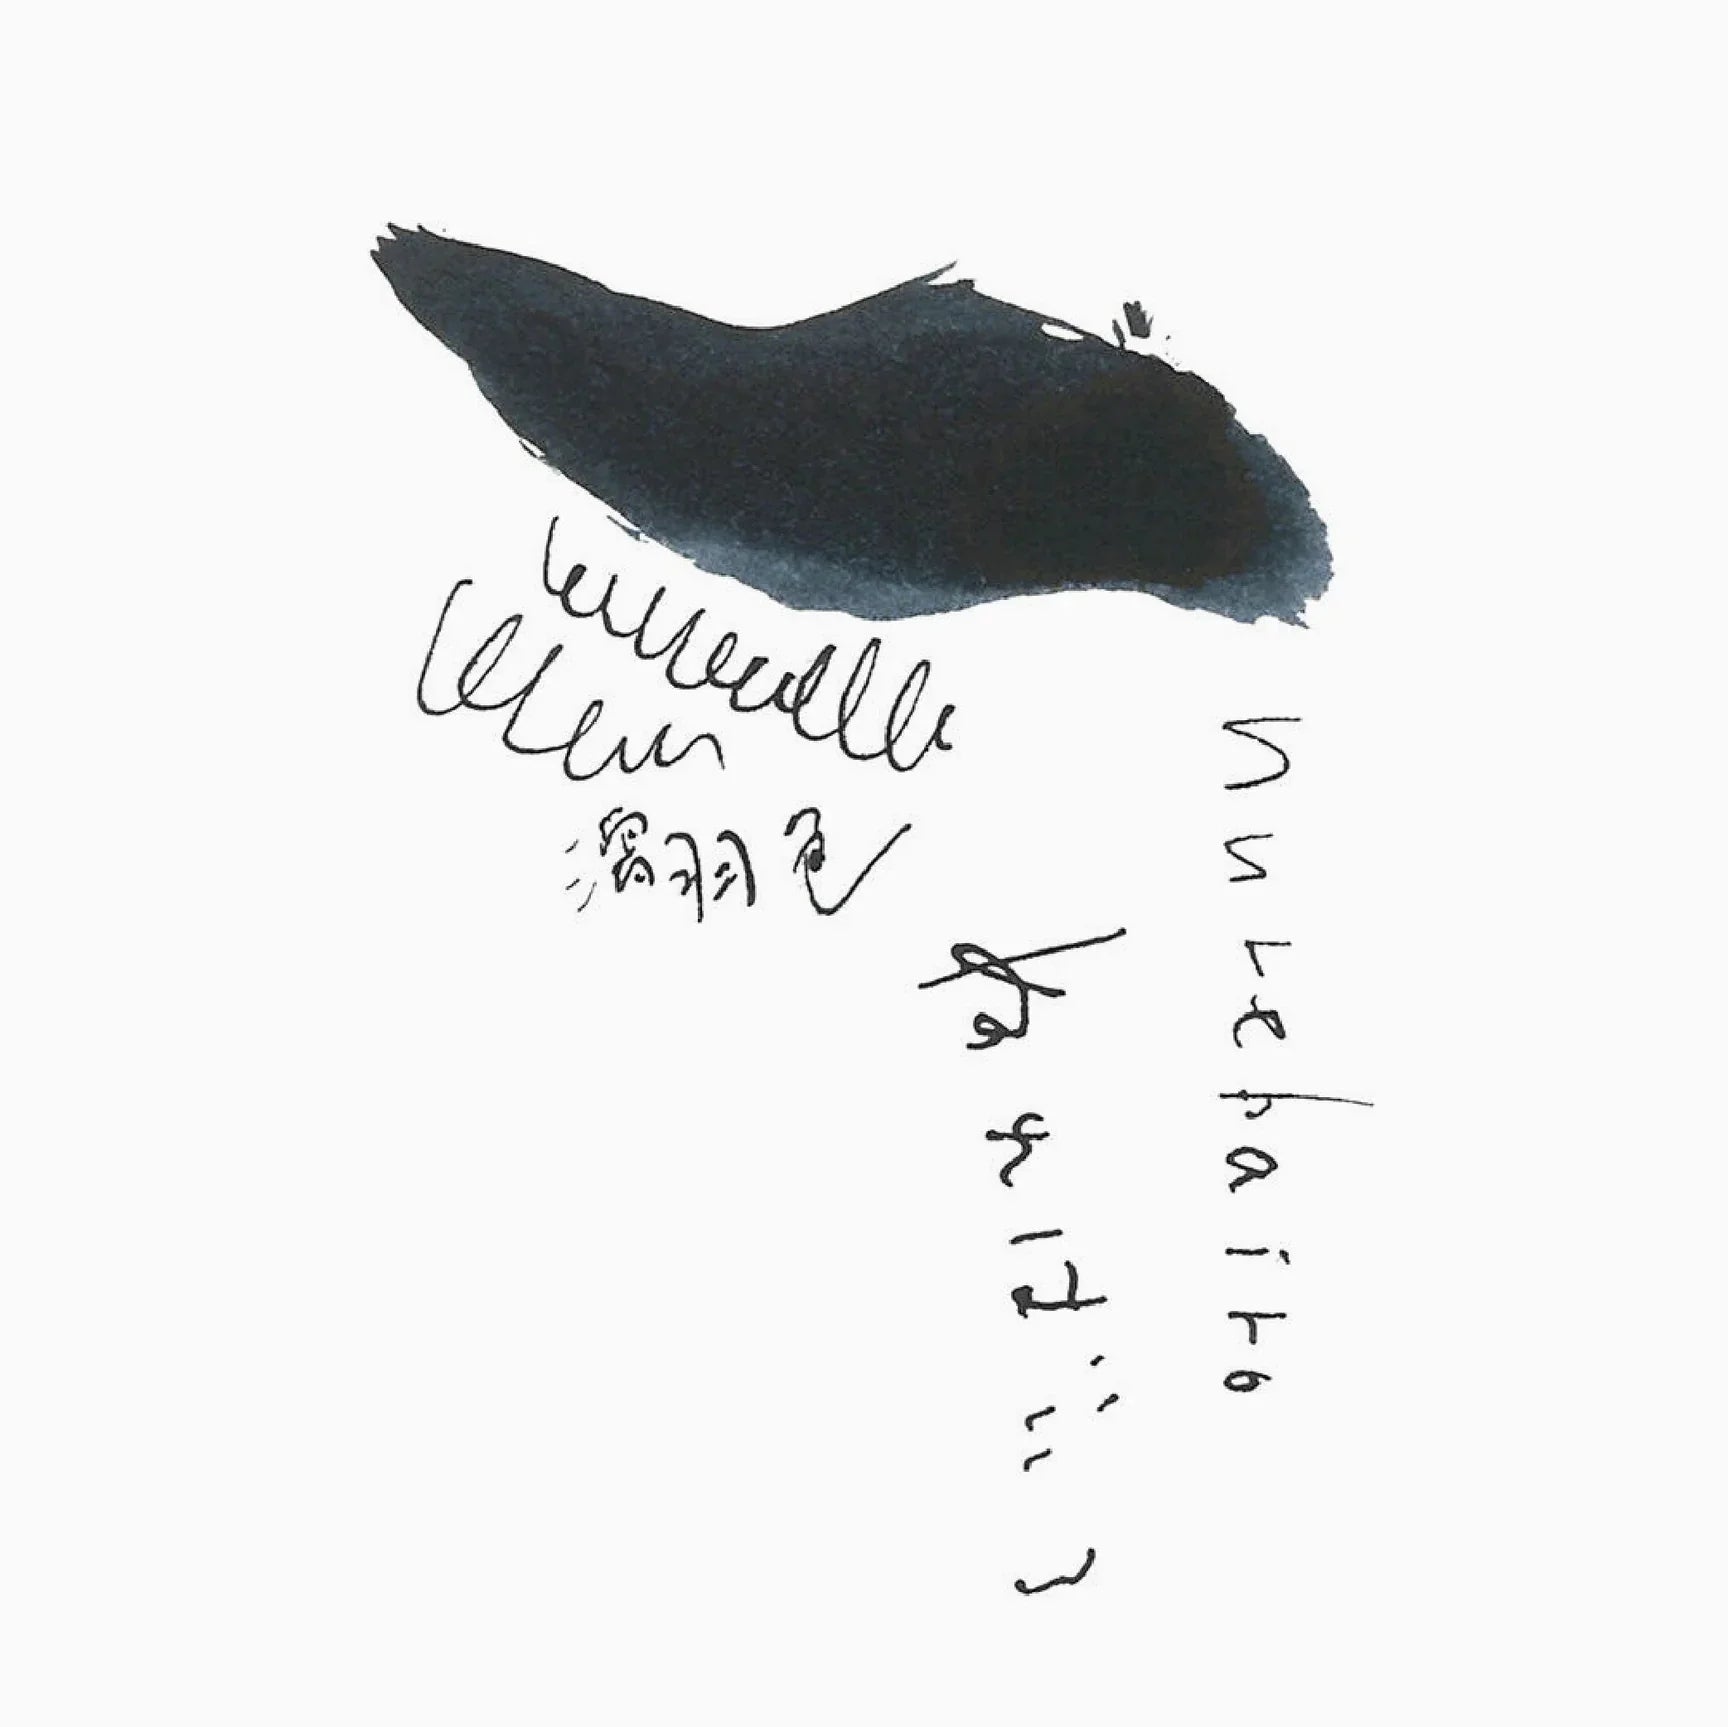 濡羽色
ぬればいろ
Nurebairo